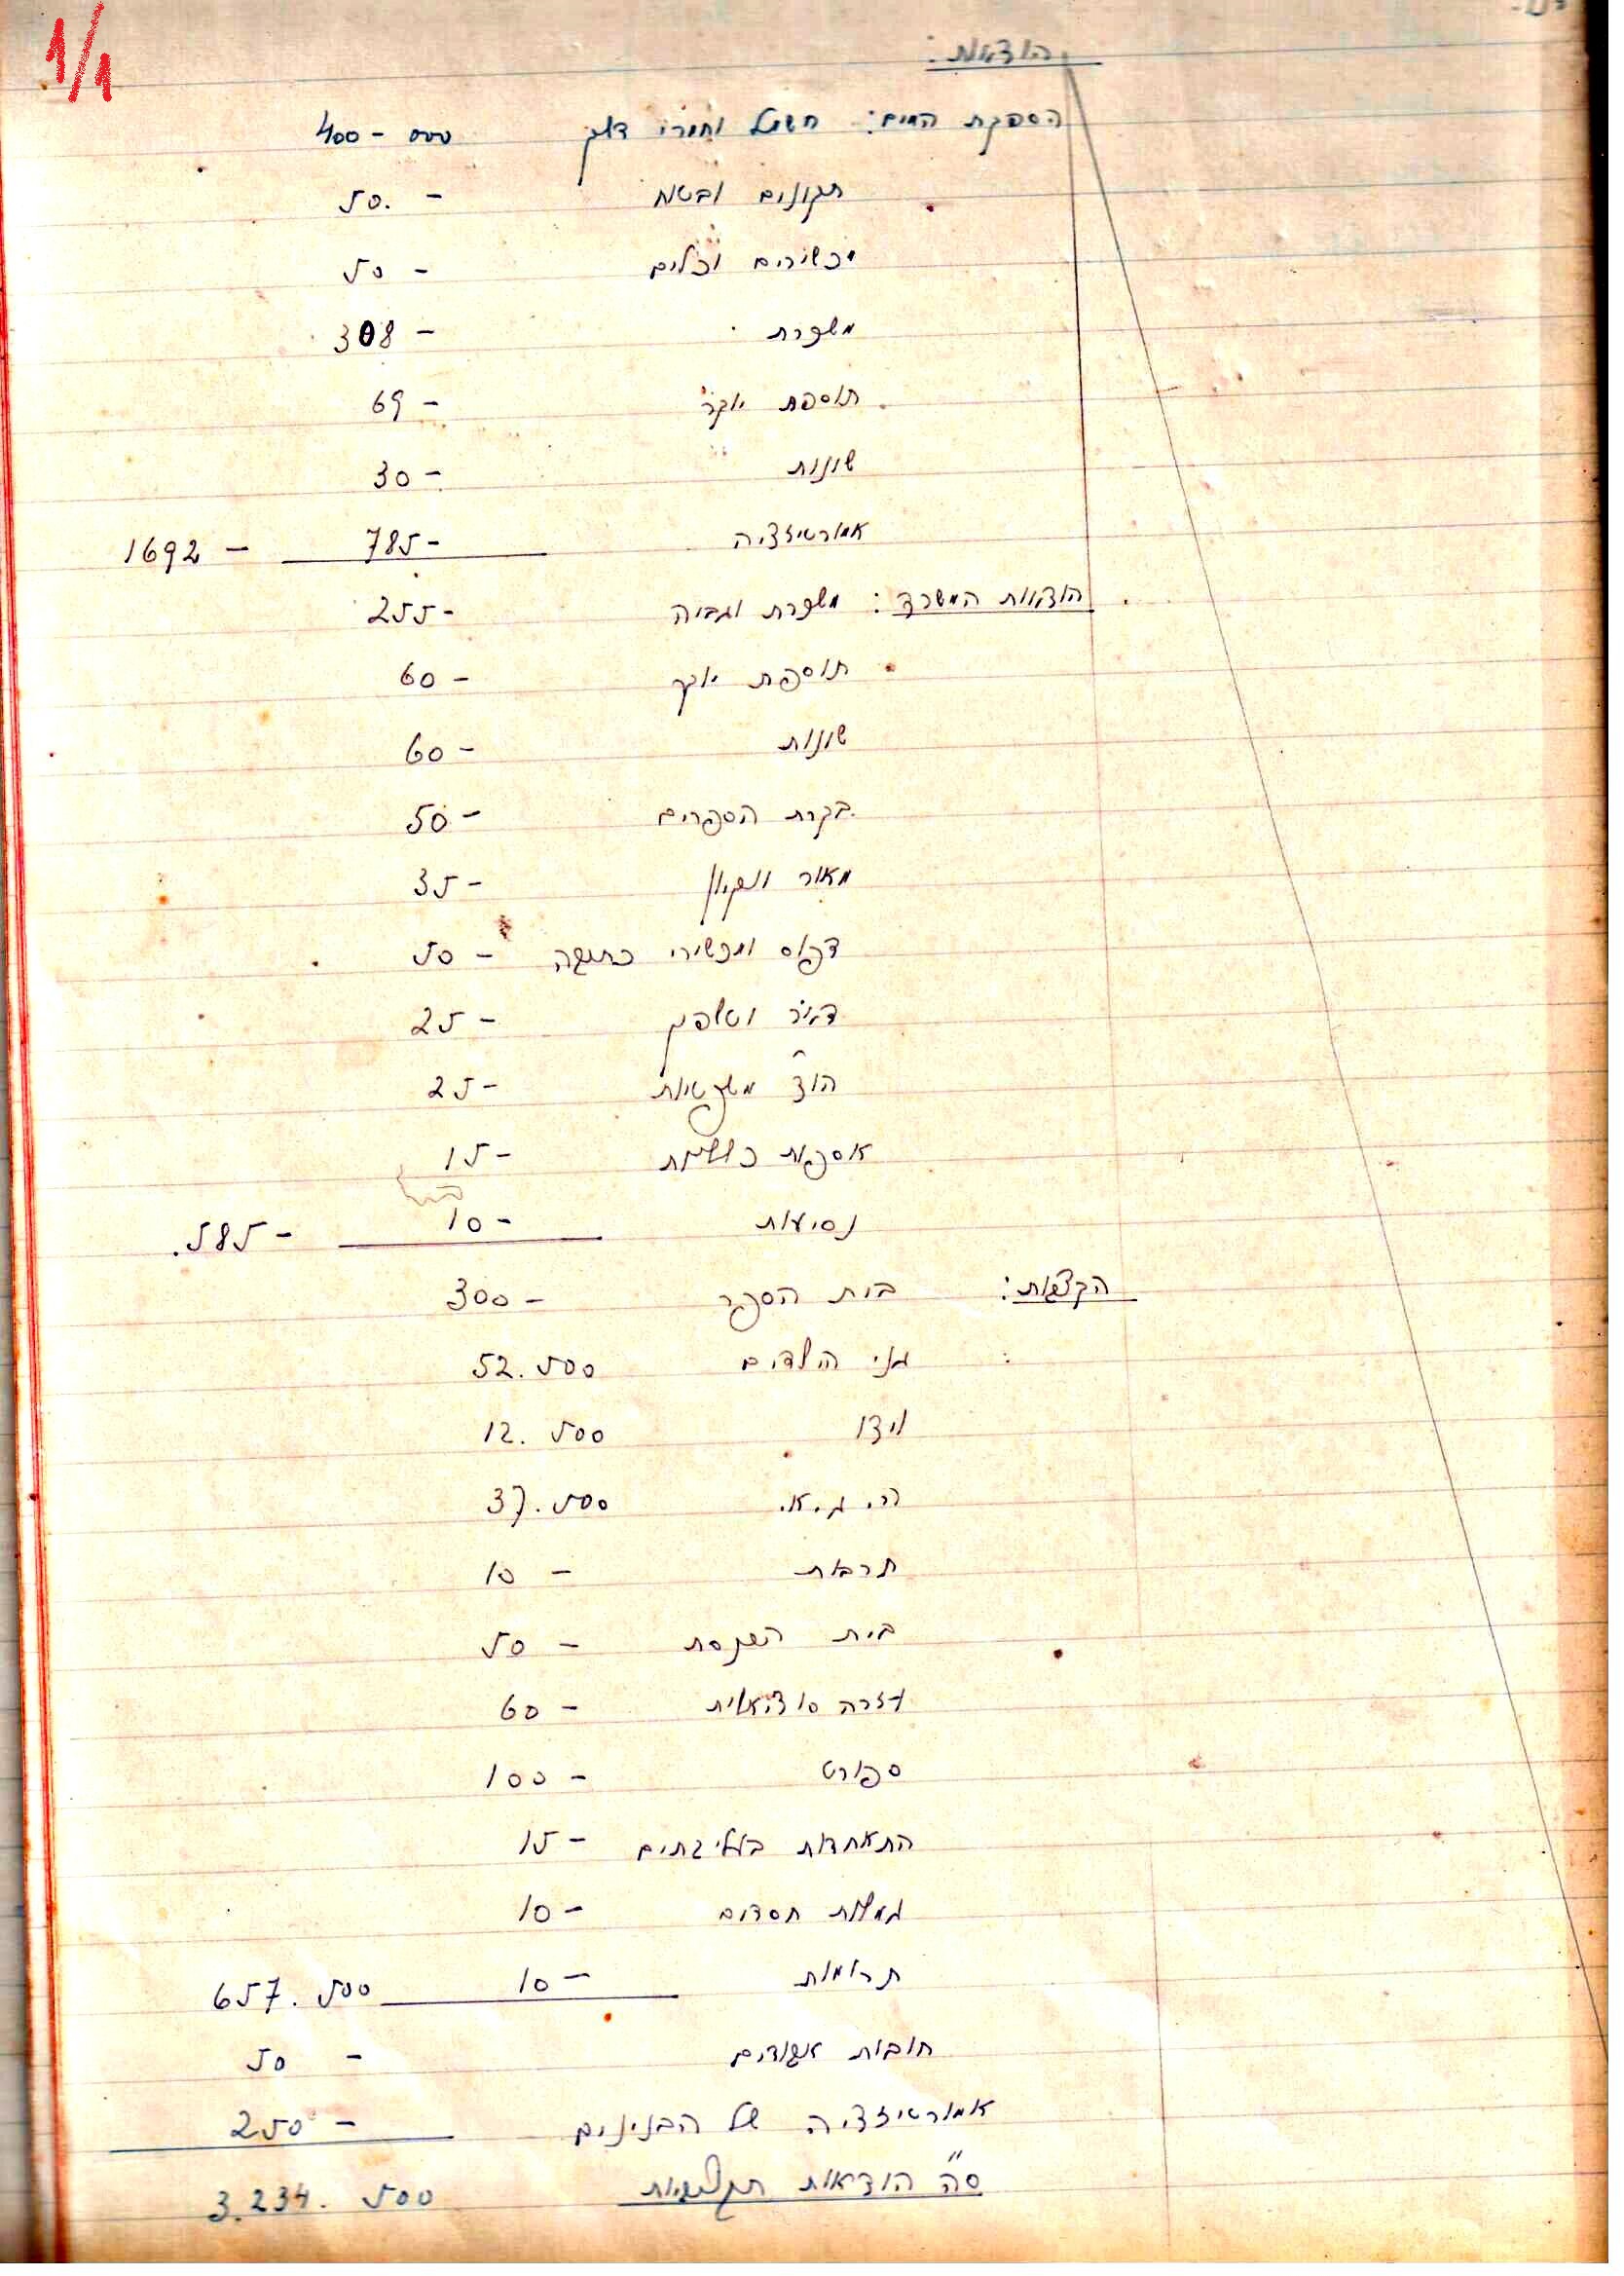 1/1
הוצאות:
הספקת המים: חשמל וחמרי דלק 400 - 000
תקונים ובטוח 50. -
מכשירים וכלים 50 -
משכורת 308 -
תוספת יוקר 69 -
שונות 30 -
אמורטיזציה 785 - 1692 -
הוצאות המשרד: משכורת וגביה 255 -
תוספת יוקר 60 -
שונות 60 -
בקרת הספרים 50 -
מאור ונקיון 35 -
דפוס ומכשירי כתיבה 50 -
דואר וטלפון 25 -
הוצ' משפטיות 25 -
אספות כלליות 15 -
נסיעות 10 - 585 -
הקצבות: בית הספר 300 -
גני הילדים 52.500
ויצו 12.500
הי.ג.אי. 37.500
תרבות 10 -
בית הכנסת 50 -
עזרה סוציאלית 60 -
ספורט 100 -
התאחדות בעלי בתים 15 -
גמילות חסדים 10 -
תרומות 10 - 657.500
חובות אבודים 50 -
אמורטיזציה של הבנינים 250 -
ס"ה הוצאות תקציביות 3.234.500